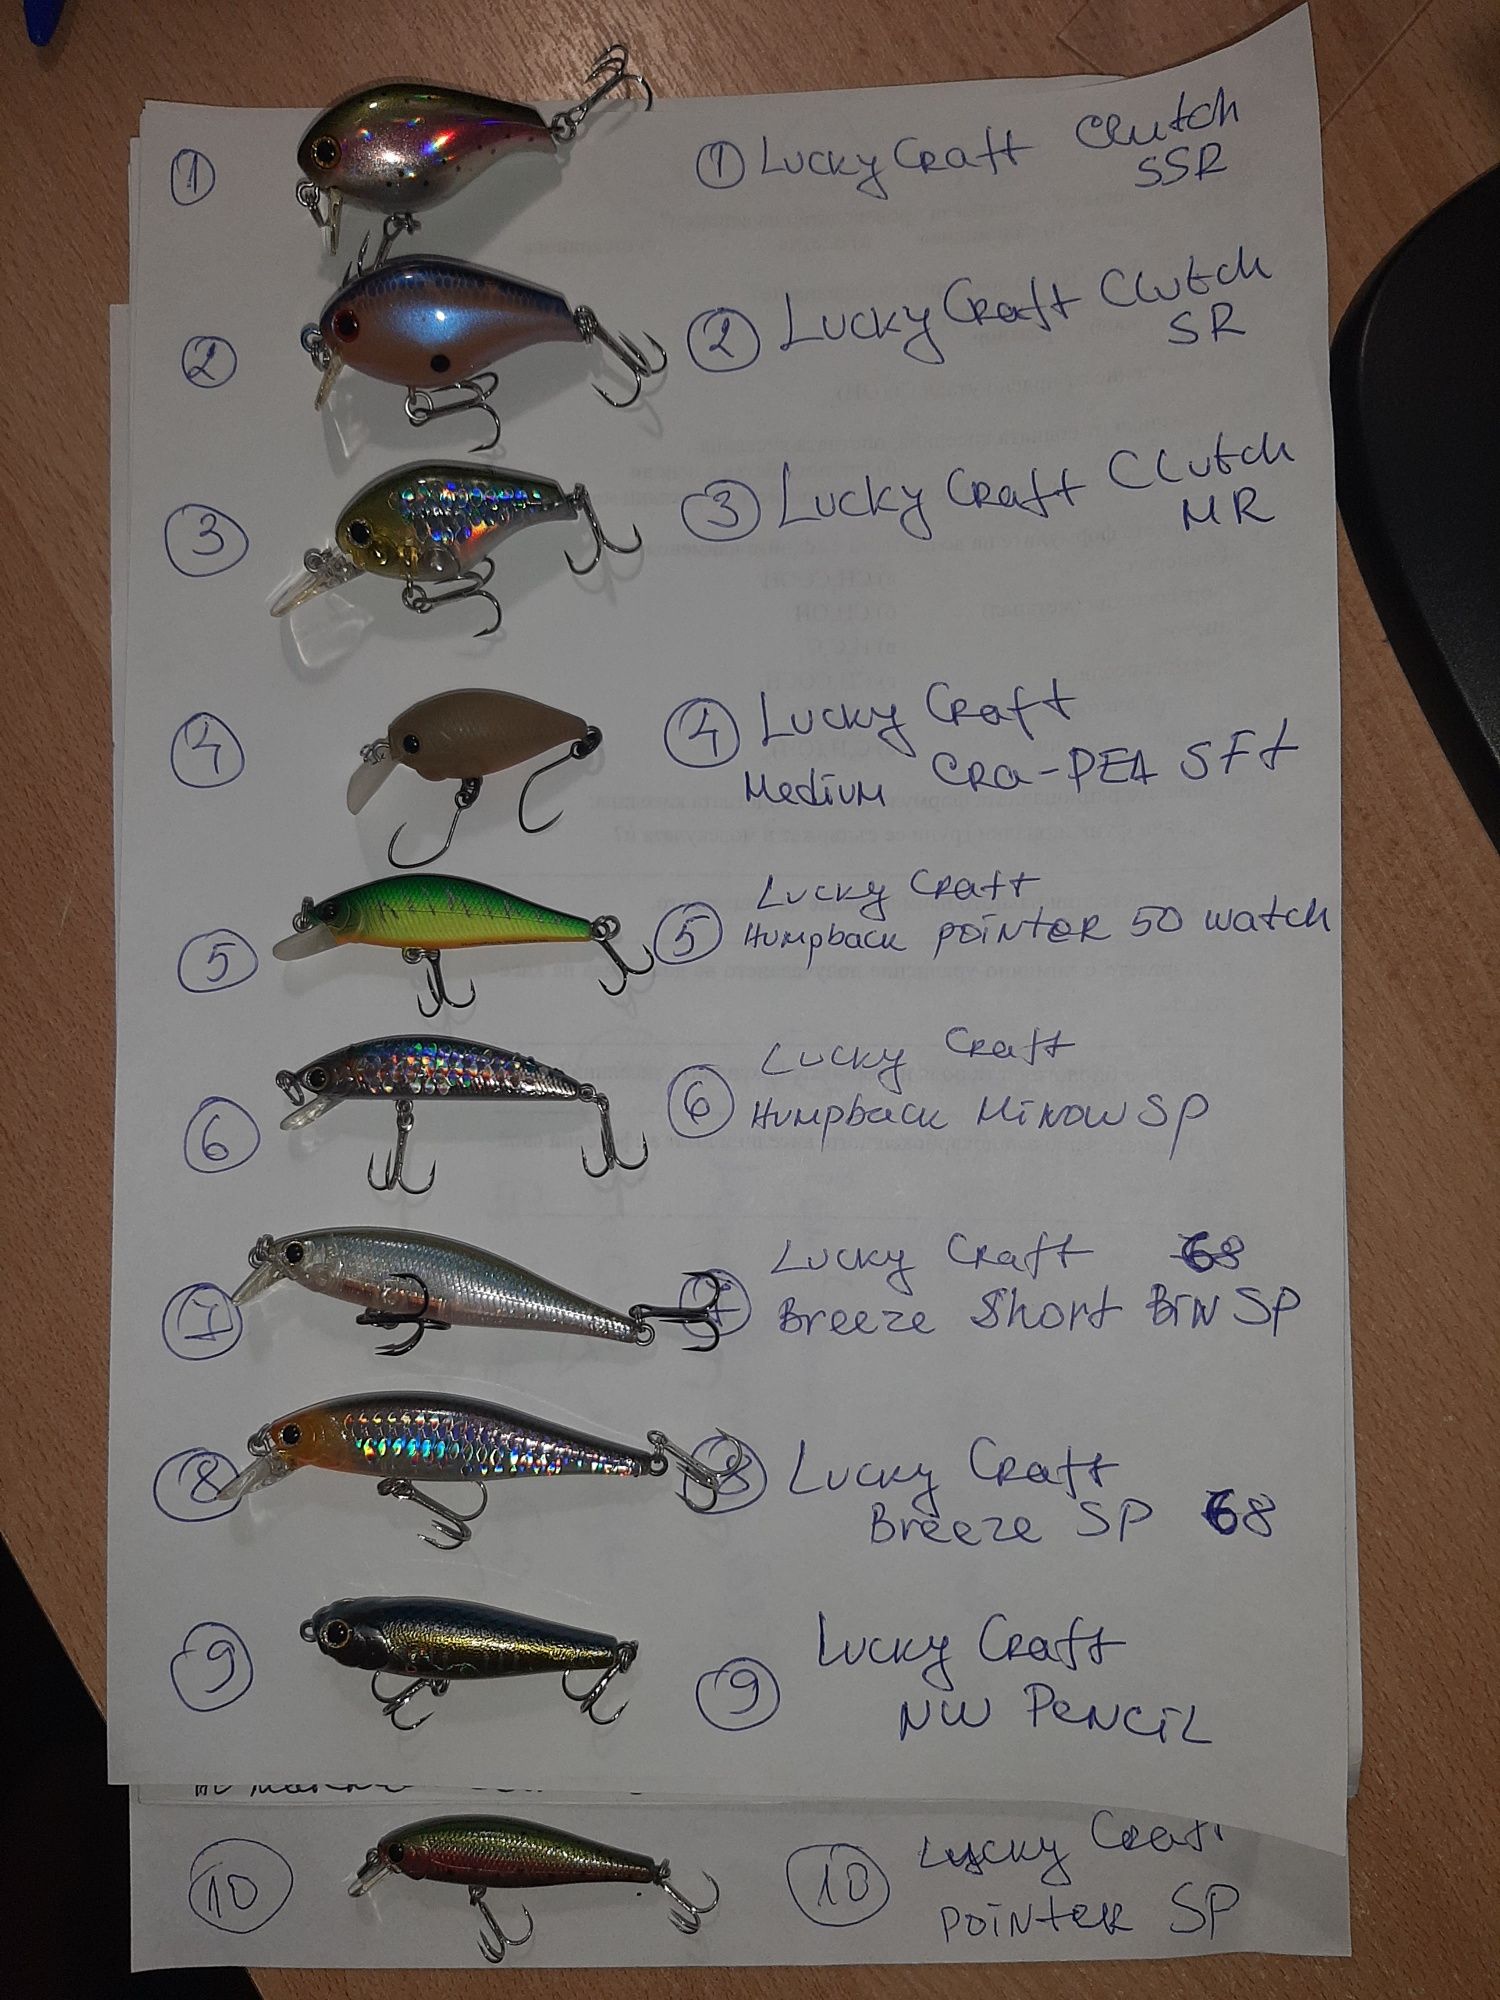 1
1 Lucky Craft Clutch
SSR
2
2 Lucky Craft Clutch
SR
3
3 Lucky Craft Clutch
MR
4
4 Lucky Craft
Medium Cra-PEA SFt
5
5 Lucky Craft
Humpback pointer 50 watch
6
6 Lucky Craft
Humpback MinowSP
7
7 Lucky Craft 68
Breeze Short BiN SP
8
8 Lucky Craft
Breeze SP 68
9
9 Lucky Craft
NW Pencil
10
10 Lycky Craft
pointer SP